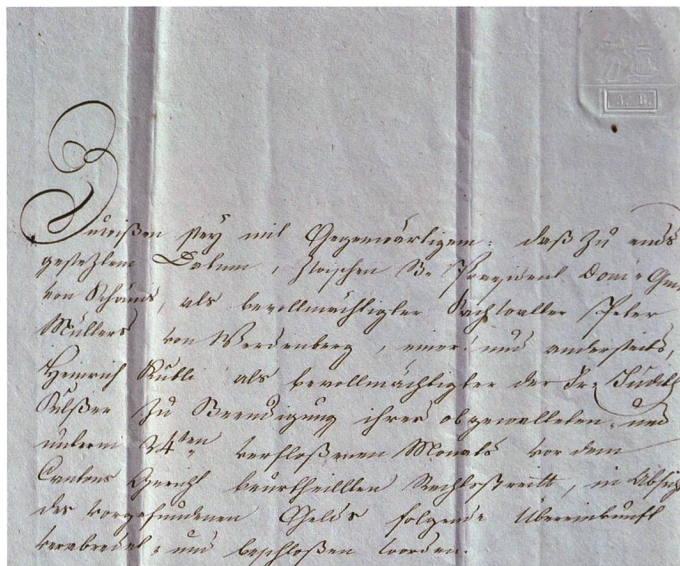 Zuwißen sey mit Gegenwärtigem: daß zu ends
gesetztem Datum, zwischen Hr. President
von Schänis, als bevollmächtigter Sachwalter Peter
Müllers von Werdenberg, einer: und anderseits,
Heinrich Kubli als bevollmächtigter der Fr. Judith
zu Beendigung ihres obgewalteten, und
unterm 24ten verfloßenen Monats vor dem
Cantons Gericht beurtheillten Rechtsstreitt, in Absicht
des vorgefundenen Gelds folgende Übereinkunft
verabredet: und beschloßen worden.